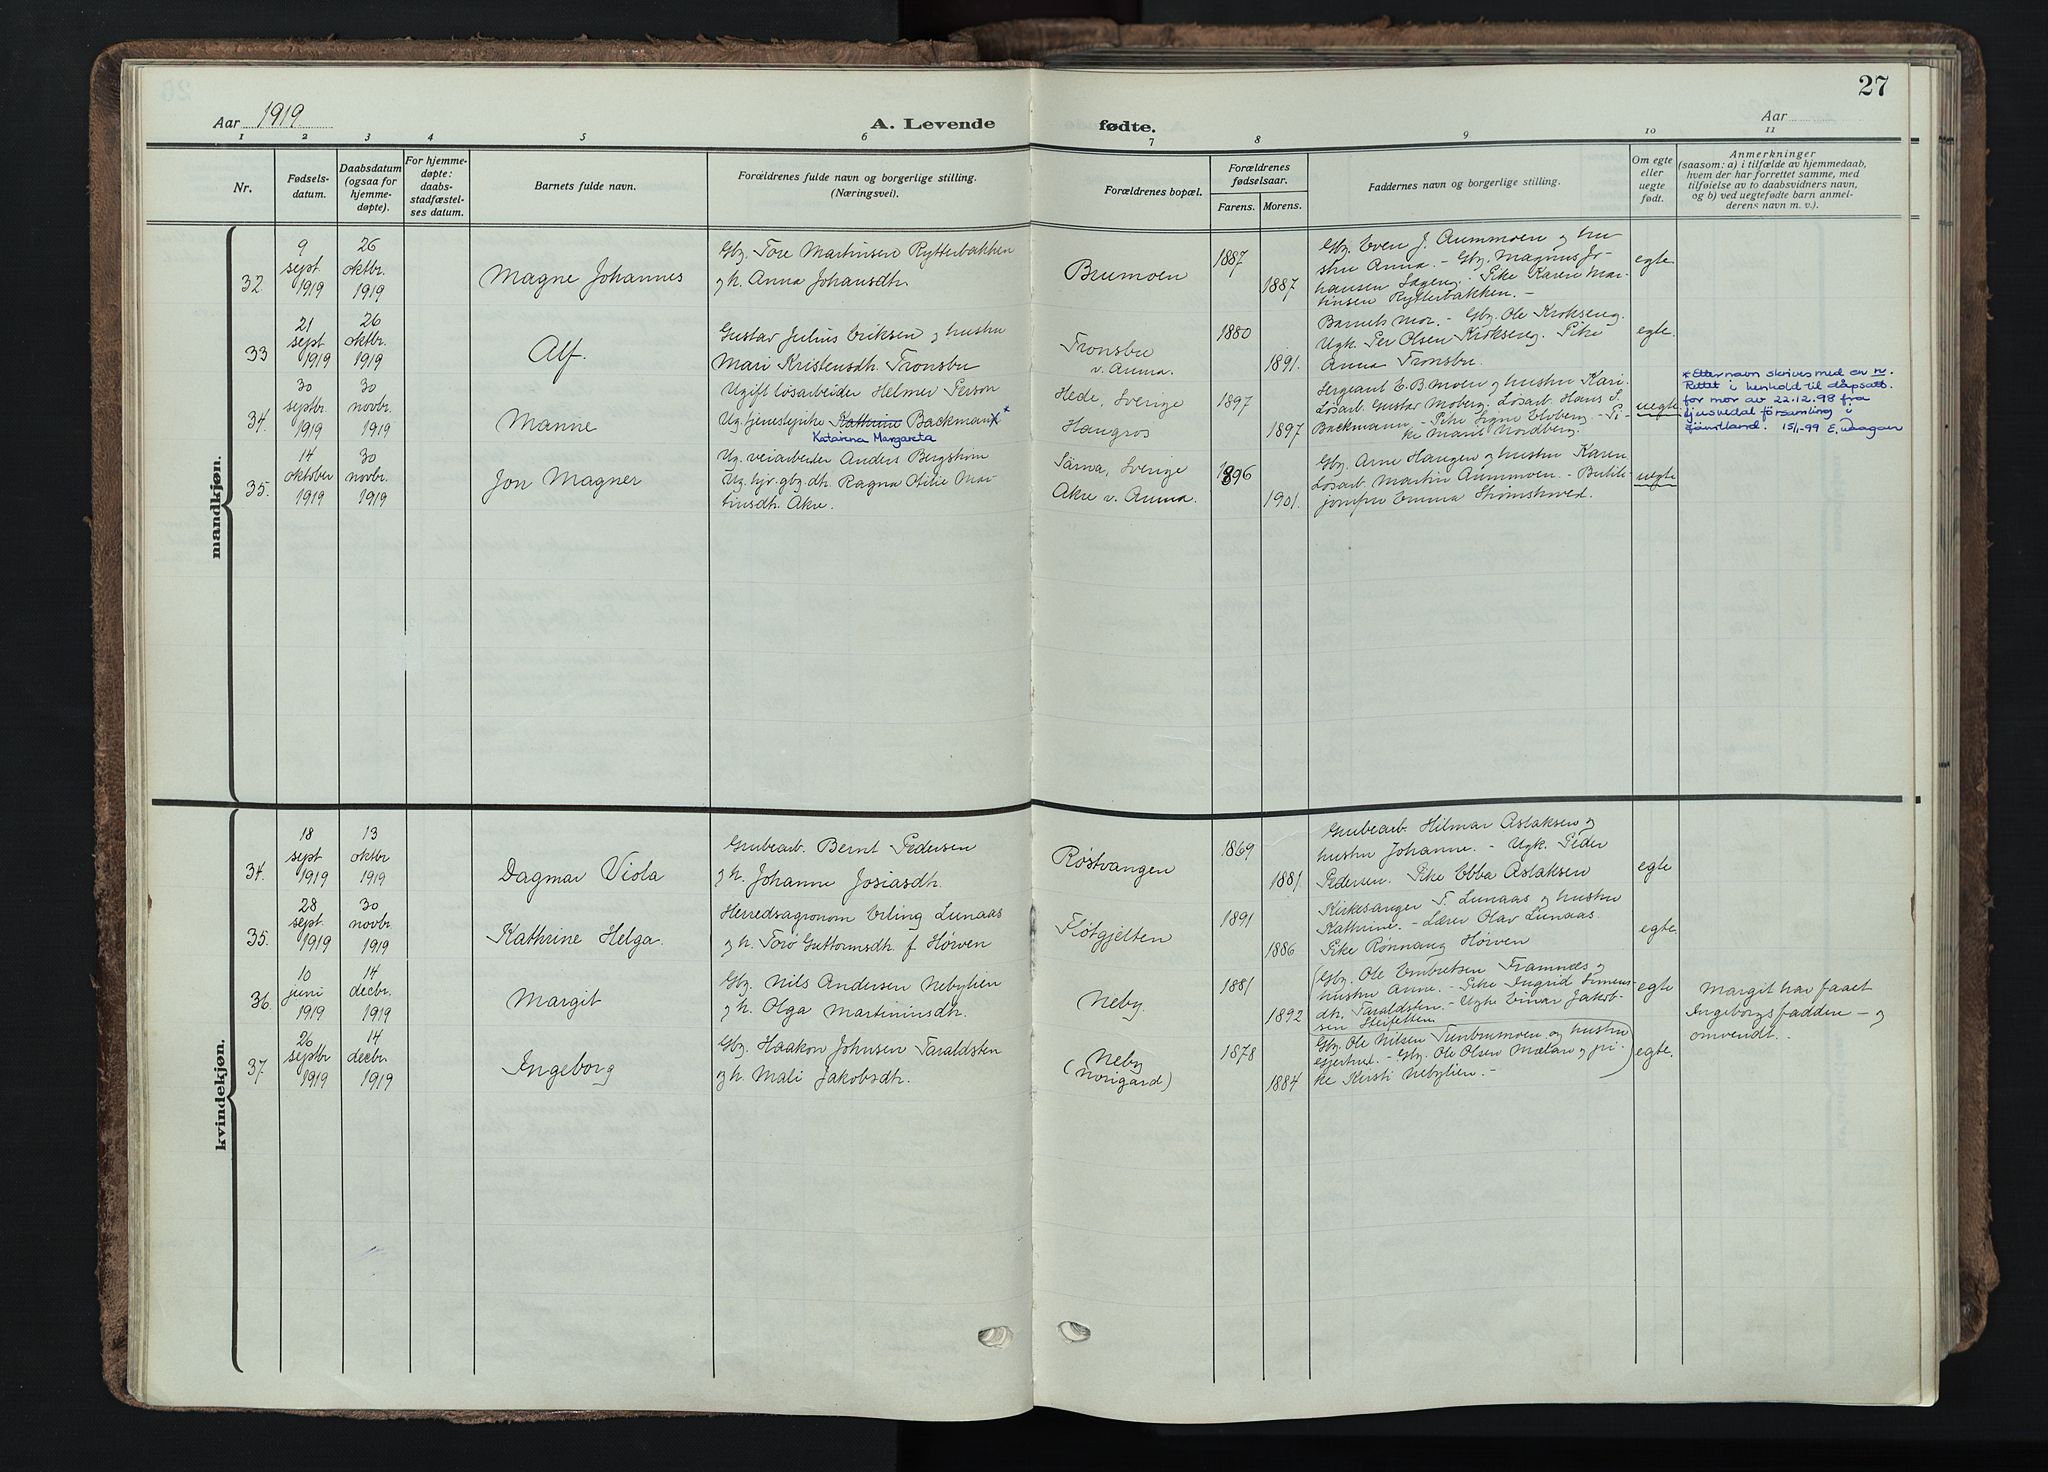 27
Aar 1919
A. Levende
fødte.
Aar
1 2 3 4 5 6 7 8 9 10 11
Nr.
Fødsels-
datum.
Daabsdatum
(ogsaa for
hjemme-
døpte).
For hjemme-
døpte:
daabs-
stadfæstel-
ses datum.
Barnets fulde navn.
Forældrenes fulde navn og borgerlige stilling.
(Næringsvei).
Forældrenes bopæl.
Forældrenes
fødselsaar.
Farens. Morens.
Faddernes navn og borgerlige stilling.
Om egte
eller
uegte
født.
Anmerkninger
(saasom: a) i tilfælde av hjemmedaab,
hvem der har forrettet samme, med
tilføielse av to daabsvidners navn,
og b) ved uegtefødte barn anmel-
derens navn m. v.).
mandkjøn.
32.
9
sept.
1919
26
oktbr.
1919
Magne Johannes
Gbr. Tore Martinsen Rytterbakken
og h. Anna Johansdh.
Brumoen
1887
1887
Gbr. Even J. Aummoen og hu
stru Anna. - Gbr. Magnus Jo-
hansen Sageng. Pike Karen Mar-
tinsen Rytterbakken. -
egte
33
21
sept.
1919
26
oktbr.
1919
Alf.
Gustav Julius Eriksen og hustru
Mari Kristensdh. Tronsbu
Tronsbu
v. Auma.
1880
1891.
Barnets mor. - Gbr. Ole Krokseng.
Ugk. Per Olsen Krokseng. Pike
Anna Tronsbu.
egte.
34.
30
septbr.
1919
30
novbr.
1919
Manne
Ugift løsarbeider Helmer Person
Ug. tjenestepike Kathrine Backmann*
Katarina Margareta
Hede, Sverige
Haugros
1897
1897
Sergeant E. B. Moen og hustru Kari.
Løsarb. Gustav Moberg. Løsarb. Hans S.
Backmann. - Pike Signe Elvberg. - Pi-
ke Marie Nordberg.
uegte
* Etternavn skrives med en n.
Rettet i henhold til dåpsatt.
for mor av 22.12.98 fra
Ljusnedal församling i
Jämtland. 15/1-99 E. Waagan
35.
14
oktober
1919
30
novbr.
1919
Jon Magner
Ug. veiarbeider Anders Bergstrøm
Ug. hjv. gbr.dh. Ragna Otilie Mar-
tinsdh. Akre.
Särna, Sverige
Akre v. Auma.
1896
1901.
Gbr. Arne Haugen og hustru Karen
Løsarb. Martin Aummoen. - Butik-
jomfru Emma Strømshoved.
uegte
kvindekjøn.
34.
18
sept.
1919
13
oktbr
1919
Dagmar Viola
Grubearb. Bernt Pedersen
og h. Johanne Josiasdh.
Røstvangen
1869
1881.
Grubearb. Hilmar Aslaksen og
hustru Johanne. - Ugk. Peder
Pedersen. Pike Ebba Aslaksen
egte
35.
28
sept.
1919
30
novbr.
1919
Kathrine Helga.
Herredsagronom Erling Lunaas
og h. Toro Guttormsdh. f. Horven
Fløtgjelten
1891
1886
Kirkesanger T. Lunaas og hustru
Kathrine. - Lærer Olav Lunaas.
Pike Rønnaug Horven
egte.
36.
10
juni
1919
14
decbr.
1919
Margit
Gbr. Nils Andersen Nebylien
og h. Olga Martininsdh.
Neby.
1881
1892
(Gbr. Ole Embretsen Framnes og
hustru Anne. - Pike Ingrid Simens-
dh. Taraldsten. - Ugk Einar Jakob-
sen Steifelten.
egte
Margit har faaet
Ingeborgs faddere - og
omvendt.
37
26
septbr
1919
14
decbr.
1919
Ingeborg
Gbr. Haakon Johnsen Taraldsten
og h. Mali Jakobsdh.
Neby
(Norigard)
1878
1884
Gbr. Ole Nilsen Tunbrumoen og hustru
Gjertrud. - Gbr. Ole Olsen Mælan og pi-
ke Kirsti Nebylien. -
egte.